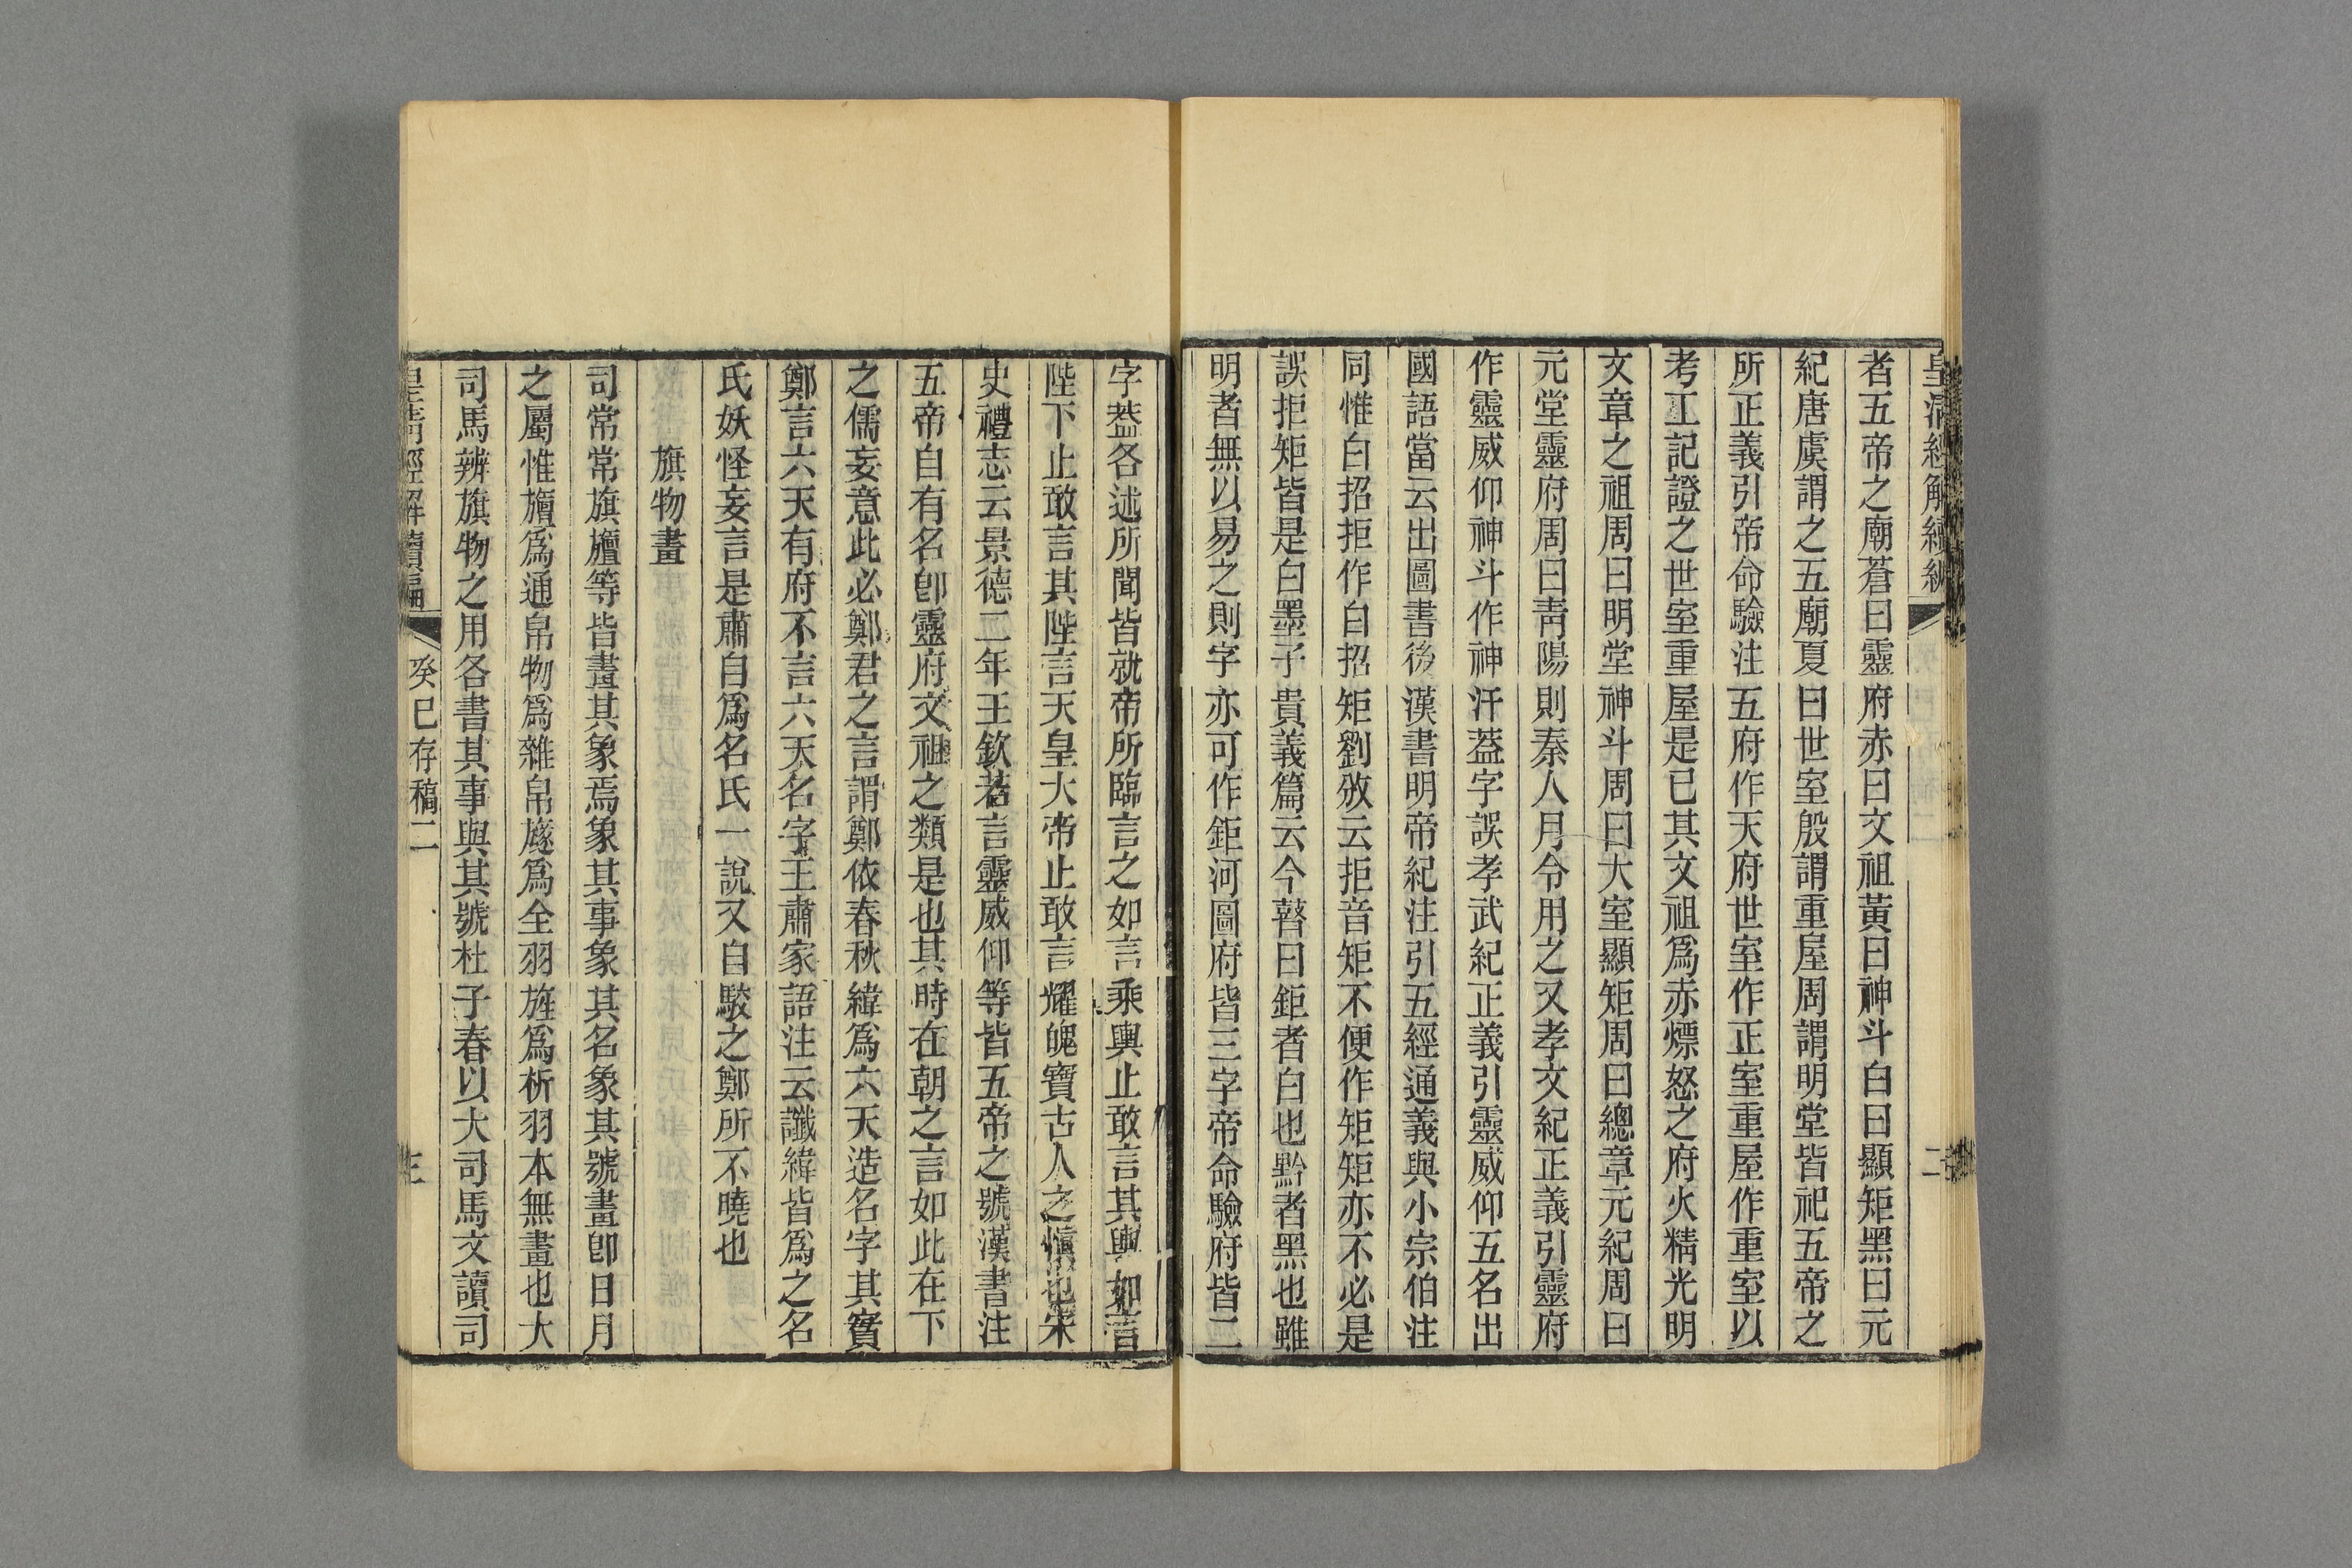 皇清經解續編 二
者五帝之廟蒼曰靈府赤曰文祖黃曰神斗白曰顯矩黑曰元
紀唐虞謂之五廟夏曰世室殷謂重屋周謂明堂皆祀五帝之
所正義引帝命驗注五府作天府世室作正室重屋作重室以
考工記證之世室重屋是已其文祖爲赤熛怒之府火精光明
文章之祖周曰明堂神斗周曰大室顯矩周曰總章元紀周曰
元堂靈府周曰靑陽則秦人月令用之又孝文紀正義引靈府
作靈威仰神斗作神汗葢字誤孝武紀正義引靈威仰五名出
國語當云出圖書後漢書明帝紀注引五經通義與小宗伯注
同惟白招拒作白招矩劉攽云拒音矩不便作矩矩亦不必是
誤拒矩皆是白墨子貴義篇云今瞽曰鉅者白也黔者黑也雖
明者無以易之則字亦可作鉅河圖府皆三字帝命驗府皆二
字葢各述所聞皆就帝所臨言之如言乘輿止敢言其輿如言
陛下止敢言其陛言天皇大帝止敢言耀魄寶古人之愼也宋
史禮志云景德二年王欽若言靈威仰等皆五帝之號漢書注
五帝自有名卽靈府文祖之類是也其時在朝之言如此在下
之儒妄意此必鄭君之言謂鄭依春秋緯爲六天造名字其實
鄭言六天有府不言六天名字王肅家語注云讖緯皆爲之名
氏妖怪妄言是肅自爲名氏一說又自駁之鄭所不曉也
旗物畫
司常常旗旜等皆畫其象焉象其事象其名象其號畫卽日月
之屬惟旜爲通帛物爲雜帛旞爲全羽旌爲析羽本無畫也大
司馬辨旗物之用各書其事與其號杜子春以大司馬文讀司
皇淸經解續編 癸巳存稿二 三